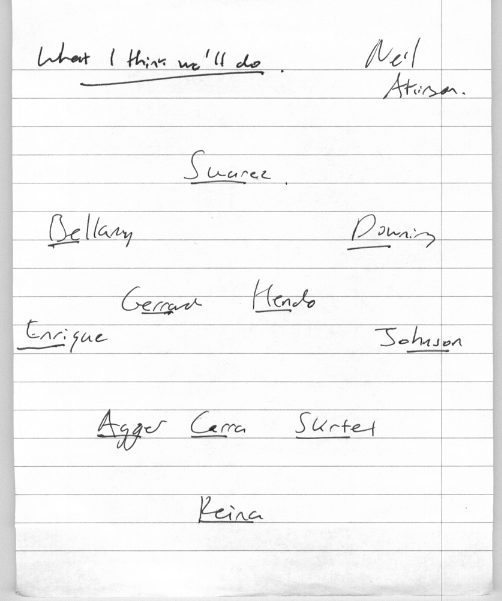 What I think we'll do. Neil
Atkinson.
Suarez.
Bellamy Downing
Gerrard Hendo
Enrique Johnson
Agger Carra Skrtel
Reina